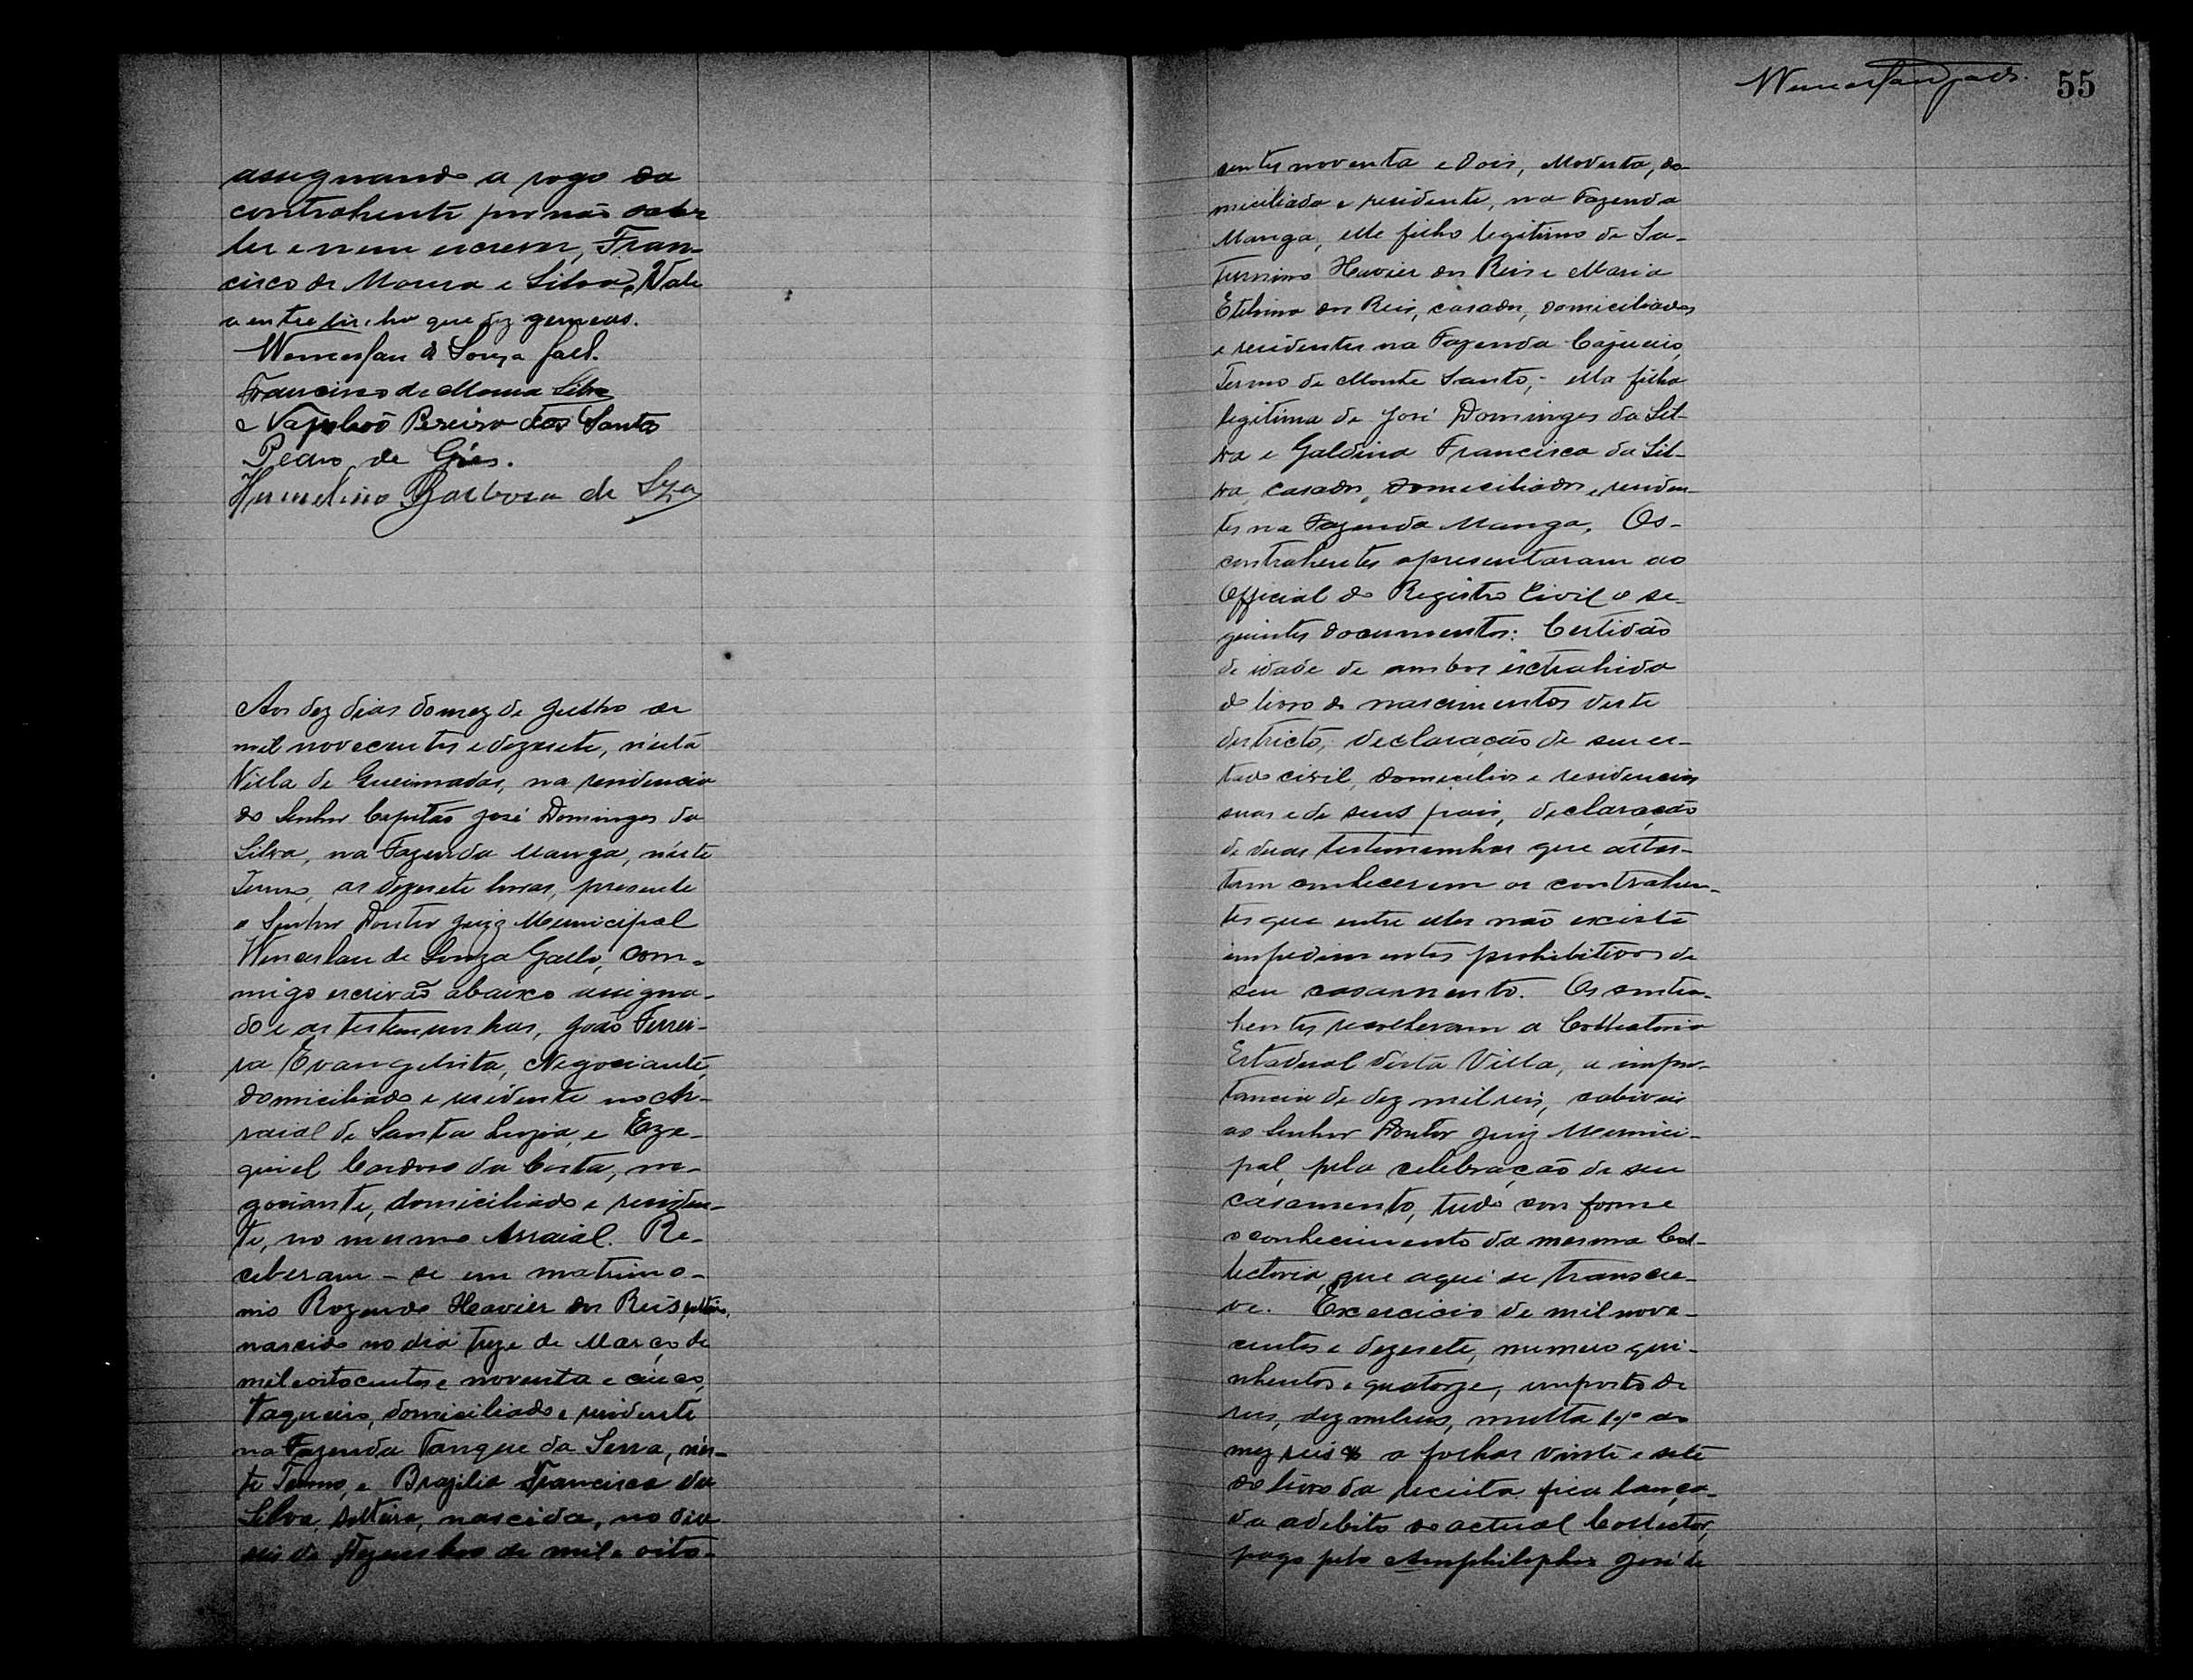 assignando a rogo da
contrahente por não saber
ler e nem escrever, Fran-
cisco de Moura e Silva, Vale
a entrelinha que diz gemeas.
Wenceslau de Souza Gall.
Francisco de Moura Silva
Napoleão Pereira dos Santos
Pedro de Góes.
Hermelino Barbosa de Sza
Aos dez dias do mez de Julho de
mil novecentos e dezesete, n'esta
Villa de Queimadas, na residencia
do Senhor Capitão José Domingos da
Silva, na Fazenda Manga, n'este
Termo, as dezesete horas, presente
o Senhor Doutor Juiz Municipal
Wenceslau de Souza Gallo, com-
migo escrivão abaixo assigna-
do e as testemunhas, João Ferrei-
ra Evangelista, Negociante,
domiciliado e residente no Ar-
raial de Santa Luzia, e Eze-
quiel Cardoso da Costa, ne-
gociante, domiciliado e residen-
te, no mesmo Arraial. Re-
ceberam-se em matrimo-
nio Rozendo Heavier dos Reis solteiro,
nascido no dia treze de Março de
mil e oitocentos e noventa e cinco,
vaqueiro, domiciliado e residente
na Fazenda Tanque da Serra, n'es-
te Termo, e Brazilia Francisca da
Silva, solteira, nascida, no dia
seis de Dezembro de mil e oito-
Wenceslau 55
centos noventa e dois, Modesta, do-
miciliada e residente, na Fazenda
Manga, elle filho legitimo de Sa-
turnino Heavier dos Reis e Maria
Etelvina dos Reis, casados, domiciliados
e residentes na Fazenda Cajueiro,
Termo de Monte Santo; ella filha
legitima de José Domingos da Sil-
va e Galdina Francisca da Sil-
va, casados, domiciliados e residen-
tes na Fazenda Manga. Os
contrahentes apresentaram ao
Official do Registro Civil o se-
guintes documentos: Certidão
de idade de ambos extrahida
do livro de nascimentos deste
districto, declaração de seu es-
tado civil, domicilios e residencias
suas e de seus pais, declaração
de duas testemunhas que attes-
tam conhecerem os contrahen-
tes que entre elles não existe
impedimentos prohibitivos de
seu casamento. Os contra-
hentes recolheram a Collectoria
Estadual désta Villa, a impor-
tancia de dez mil reis, cabiveis
ao Senhor Doutor Juiz Munici-
pal, pela celebração de seu
casamento, tudo conforme
o conhecimento da mesma Col-
lectoria, que aqui se transcre-
ve. Exercicio de mil nove-
centos e dezesete, numero qui-
nhentos e quatorze, imposto de
reis, dez mil reis, multa % do
mez reis a folhas vinte e sete
do livro da receita fica lança-
da a debito do actual Collector,
pago pelo Amphilophio José de